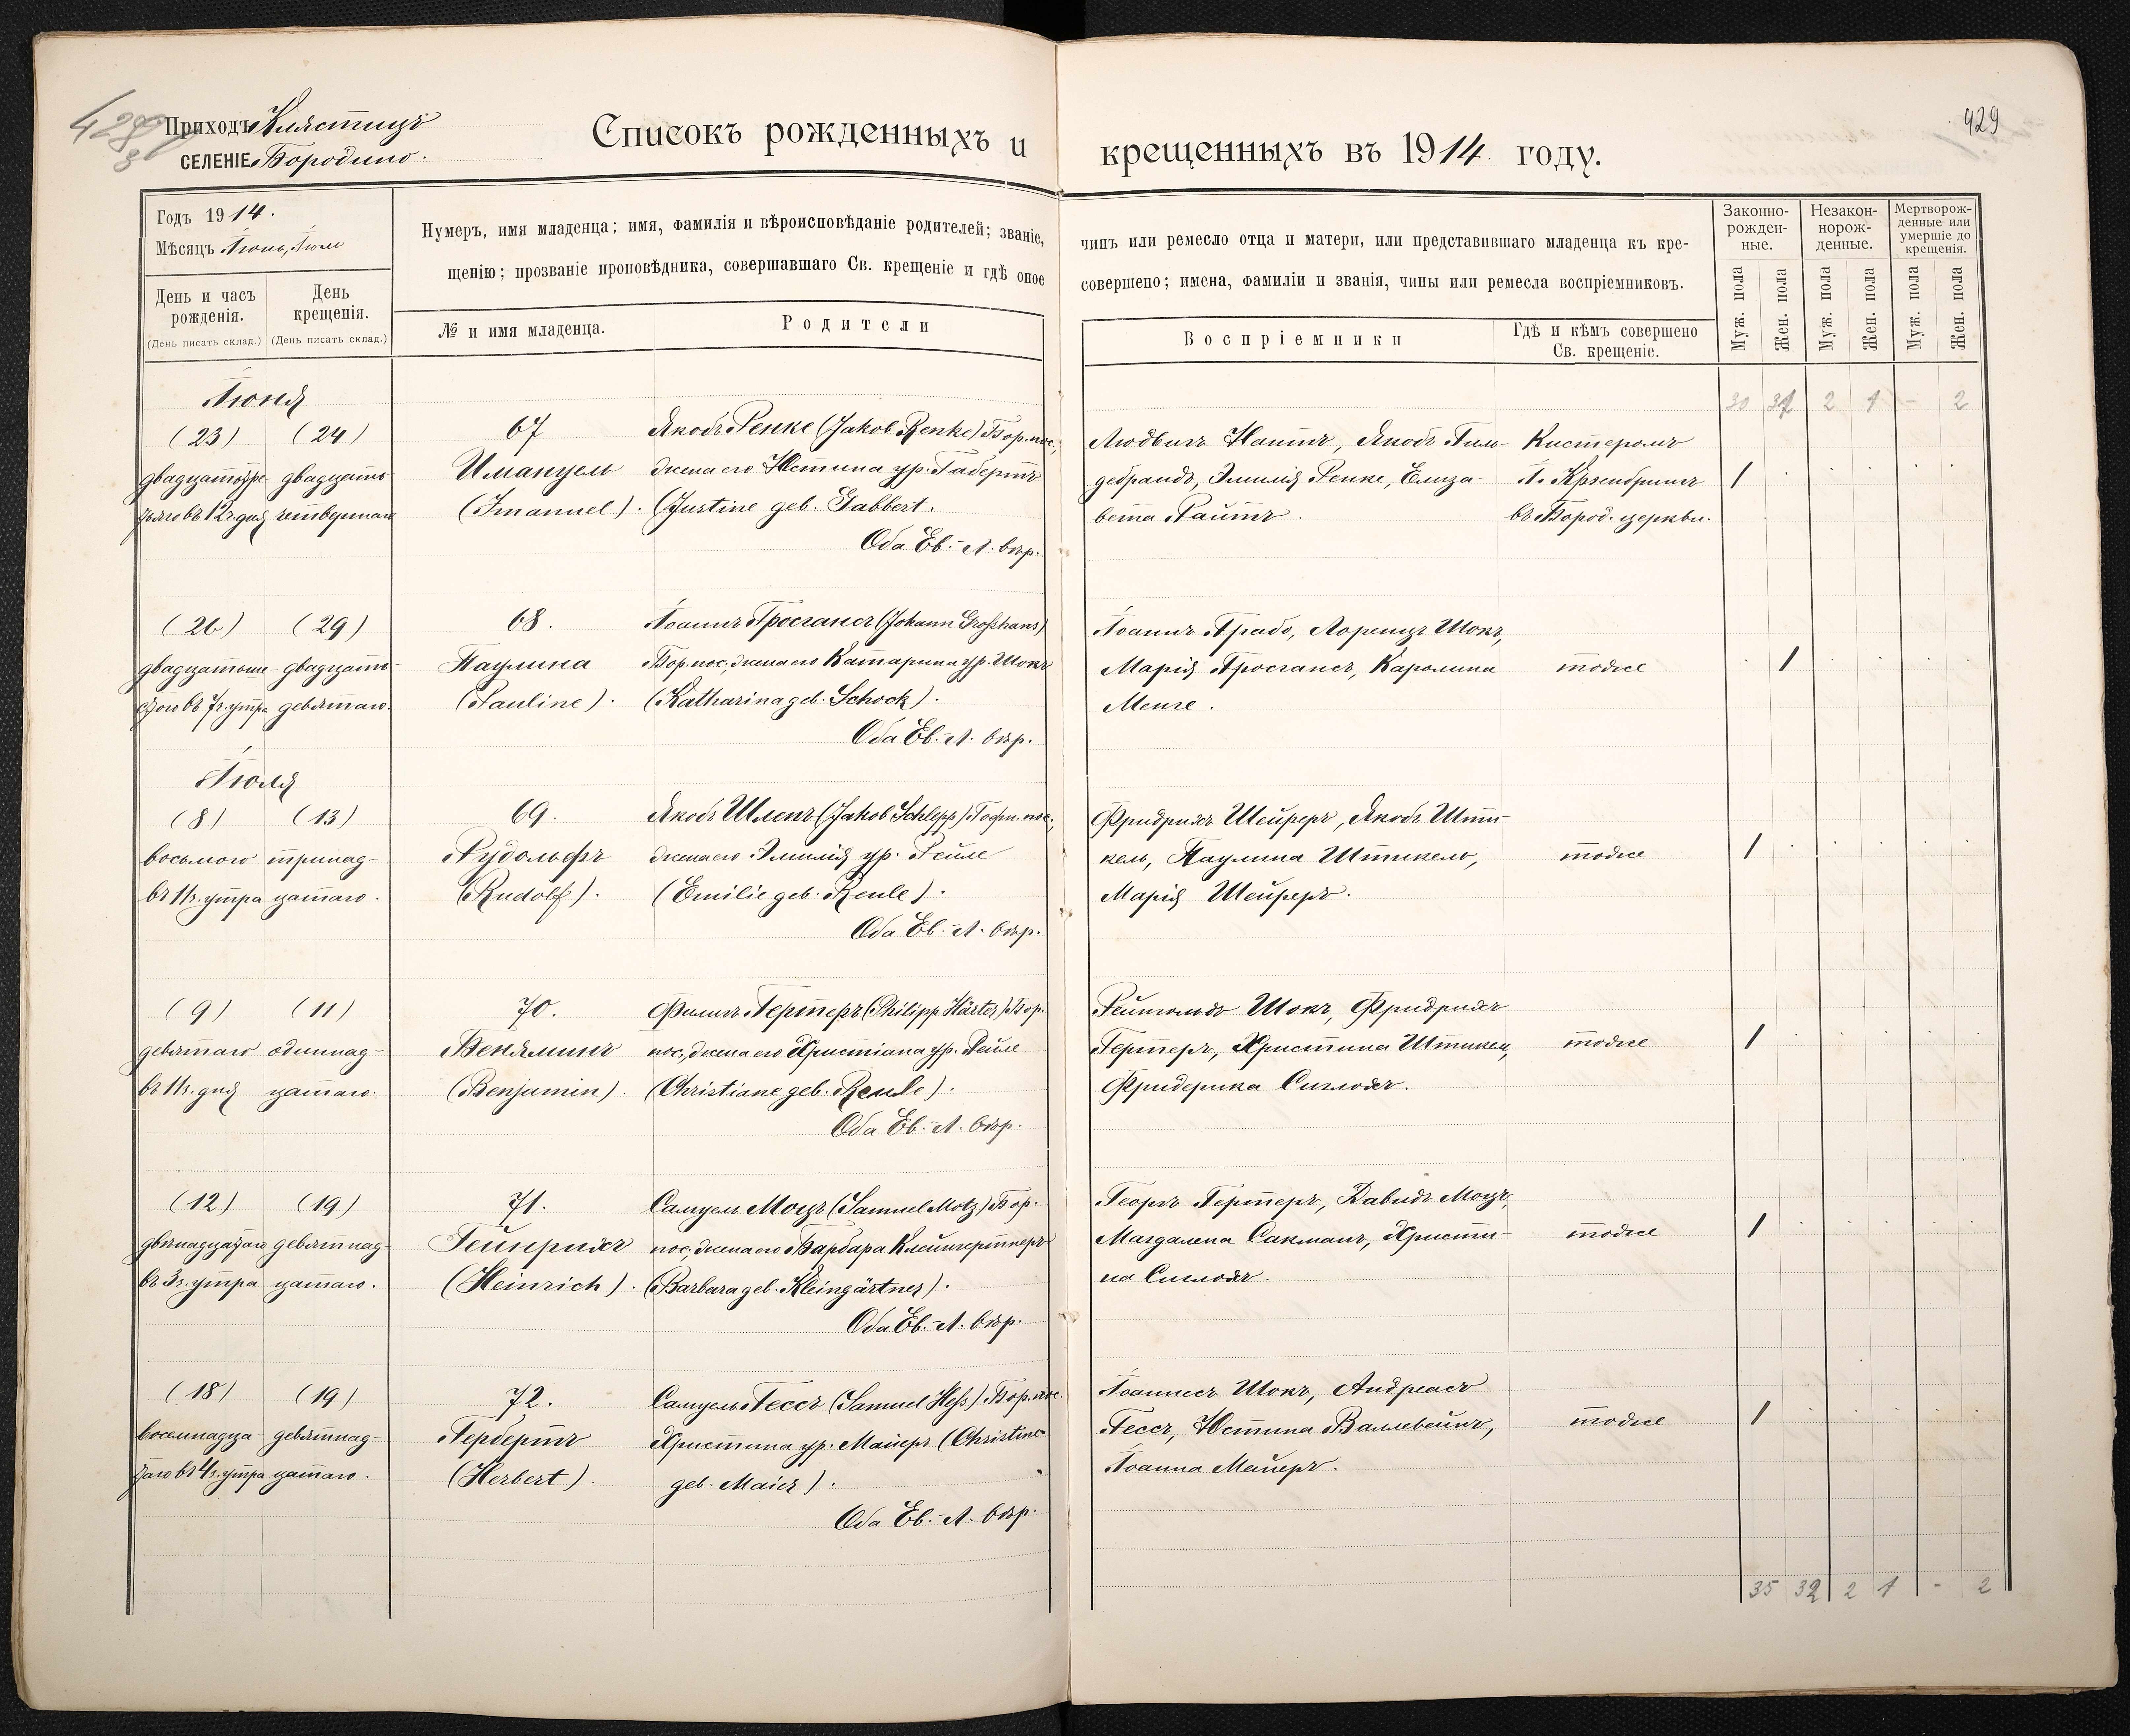 Приходъ Клястицъ
СЕЛЕНІЕ Бородино.
Списокъ рожденныхъ и крещенныхъ въ 1914 году.
429
Годъ 1914.
Мѣсяцъ Іюнь, Іюль
День и часъ рожденія.
(День писать склад.)
День крещенія.
(День писать склад.)
Нумеръ, имя младенца; имя, фамилія и вѣроисповѣданіе родителей; званіе, чинъ или ремесло отца и матери, или представившаго младенца къ кре-
щенію; прозваніе проповѣдника, совершавшаго Св. крещеніе и гдѣ оное совершено; имена, фамиліи и званія, чины или ремесла воспріемниковъ.
№ и имя младенца.
Родители
Воспріемники
Гдѣ и кѣмъ совершено
Св. крещеніе.
Законно-
рожден-
ные.
Незакон-
норож-
денные.
Мертворож-
денные или
умершіе до
крещенія.
Муж. пола
Жен. пола
Муж. пола
Жен. пола
Муж. пола
Жен. пола
Іюня
30 2 1 - 2
(23) (24) 67 Якобъ Ренке (Jakob Renke) Бор. пос., Людвигъ Наттъ, Якобъ Гиль- Кистеромъ
двадцатотре- двадцать Имануель жена его Юстина ур. Габертъ дебрандъ, Эмилія Ренке, Елиза- 1
тьяго въ 12 ч. дня четвертаго (Imanuel). (Justine geb. Gabbert. бета Райтъ. въ Бород. церкви.
Оба Ев.-Л. вѣр.
(26) (29) 68. Іоаннъ Гросгансъ (Johann Großhans) Іоаннъ Грабо, Лоренцъ Шокъ,
двадцатьше- двадцать- Паулина Бор. пос., жена его Катарина ур. Шокъ Марія Гросгансъ, Каролина тоже 1
стого въ 7 ч. утра девятаго. (Pauline). (Katharina geb. Schock). Менге.
Оба Ев.-Л. вѣр.
Іюля
(8) (13) 69. Якобъ Шлепъ (Jakob Schlepp) Гофн. пос., Фридрихъ Шейреръ, Якобъ Шти-
восьмого тринад- Рудольфъ жена его Эмилія ур. Рейле кель, Паулина Штикель, тоже 1
въ 11 ч. утра цатаго. (Rudolf). (Emilie geb. Reule). Марія Шейреръ.
Оба Ев.-Л. вѣр.
(9) (11) 70. Филипъ Гертеръ (Philipp Härter) Бор. Рейнгольдъ Шокъ, Фридрихъ
девятаго одиннад- Веніяминъ пос., жена его Христіана ур. Рейле Гертеръ, Христина Штикель, тоже 1
въ 11 ч. дня цатаго. (Benjamin). (Christiane geb. Reule). Фридерика Сиглохъ.
Оба Ев.-Л. вѣр.
(12) (19) 71. Самуель Моцъ (Samuel Motz) Бор. Георгъ Гертеръ, Давидъ Моцъ,
двѣнадцатаго девятнад- Гейнрихъ пос., жена его Барбара Клейнгертнеръ Магдалена Сакманъ, Христи- тоже 1
въ 3 ч. утра цатаго. (Heinrich). (Barbara geb. Kleingärtner). на Сиглохъ.
Оба Ев.-Л. вѣр.
(18) (19) 72. Самуель Гессъ (Samuel Heß) Бор. пос. Іоаннесъ Шокъ, Андреасъ
восемнадца- девятнад- Гербертъ Христина ур. Майеръ (Christine Гессъ, Юстина Валлевейнъ, тоже 1
таго въ 4 ч. утра цатаго. (Herbert). geb. Maier). Іоанна Майеръ.
Оба Ев.-Л. вѣр.
35 32 2 1 - 2